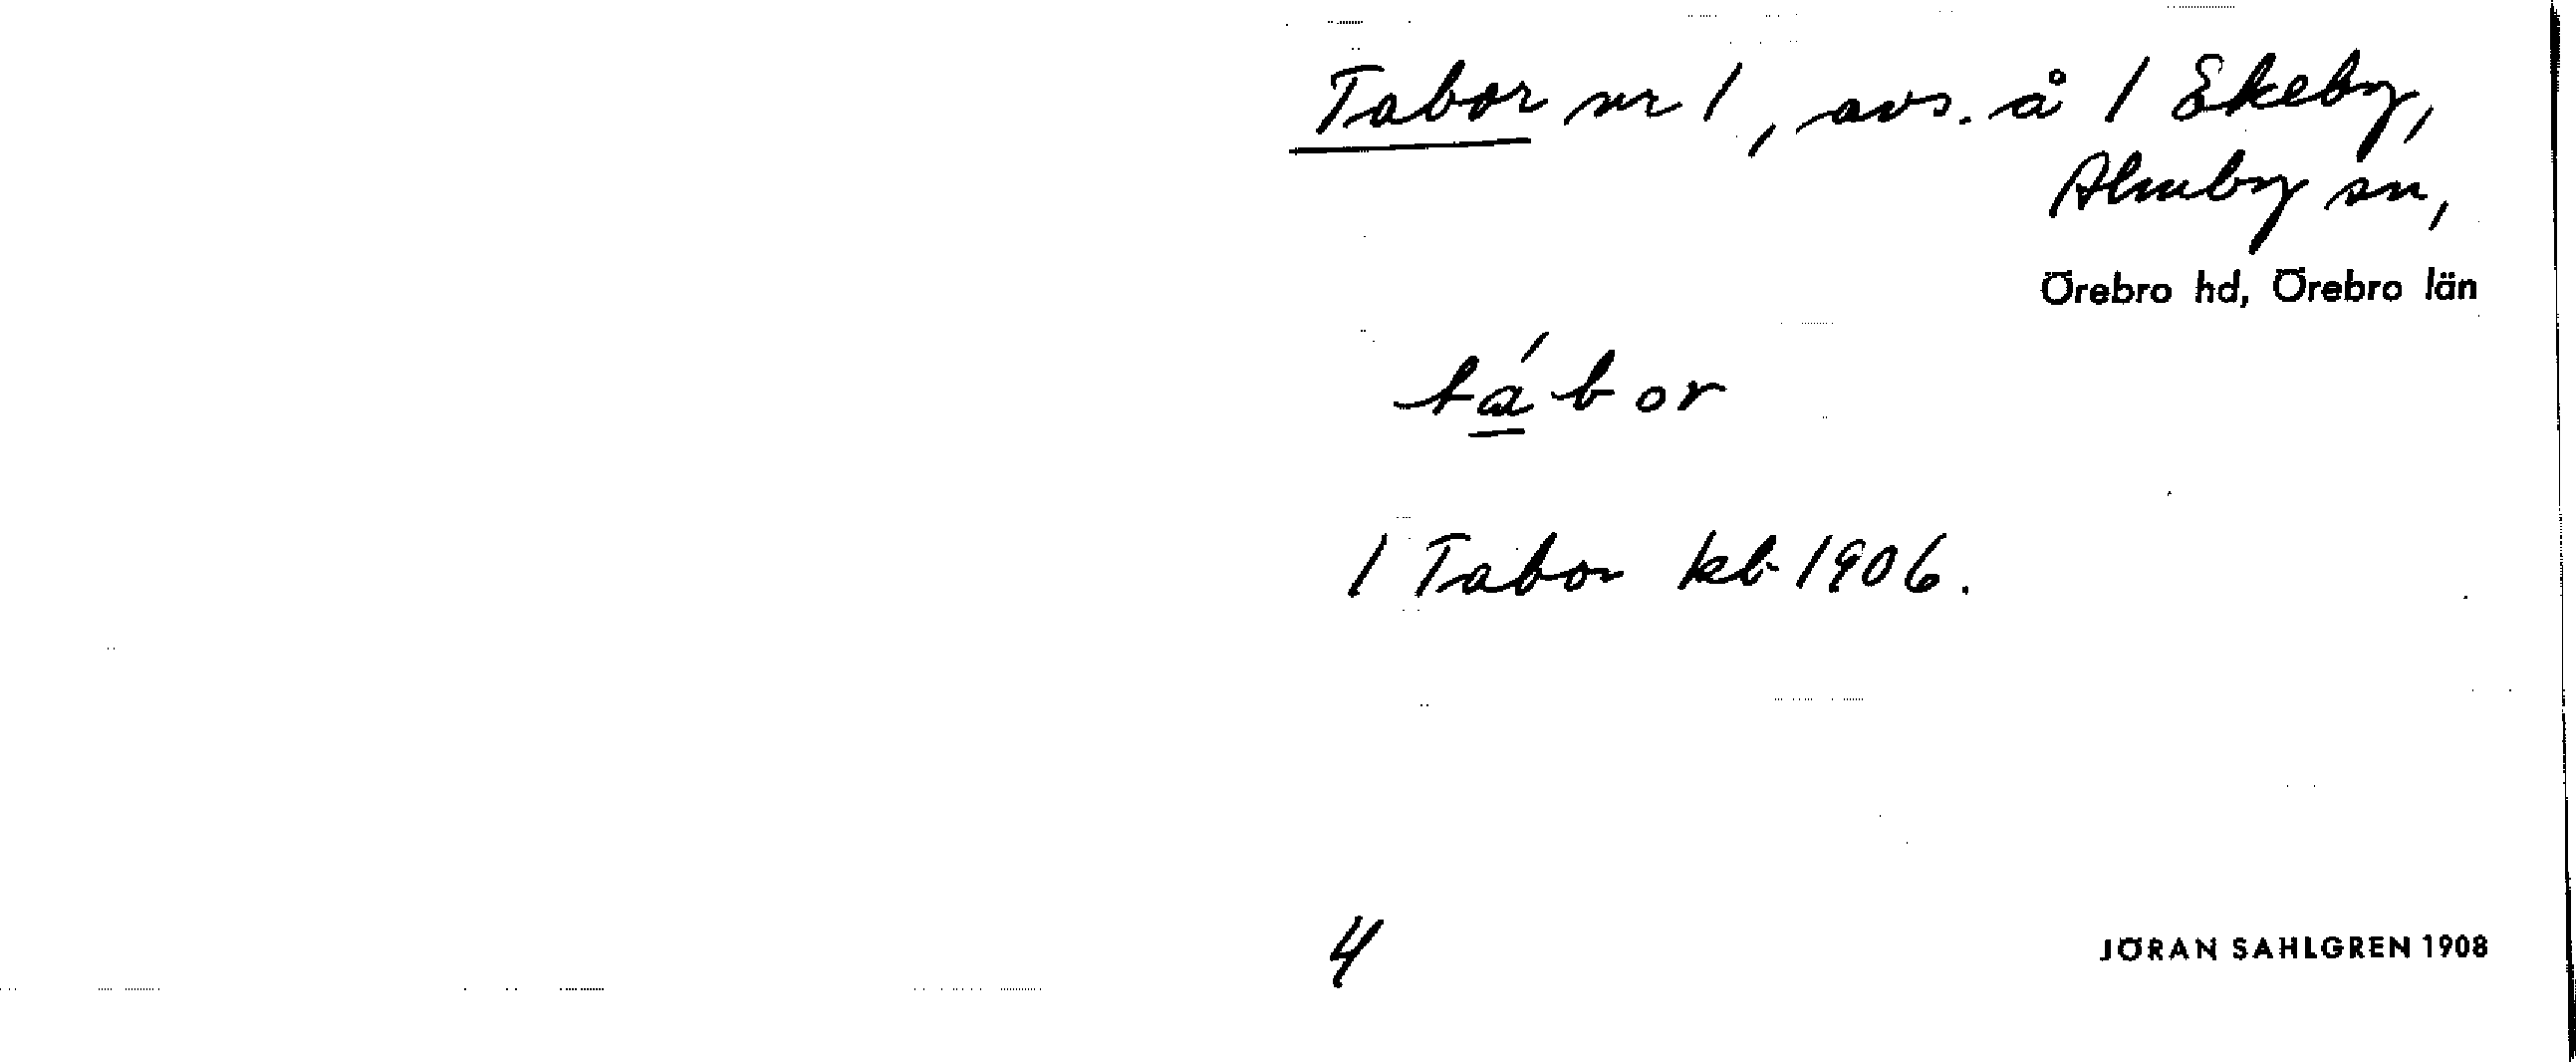 Tabor nr 1, avs. å 1 Ekeby,
Almby sn,
Örebro hd, Örebro län
tábor
1 Tabor kb 1906.
4
JÖRAN SAHLGREN 1908